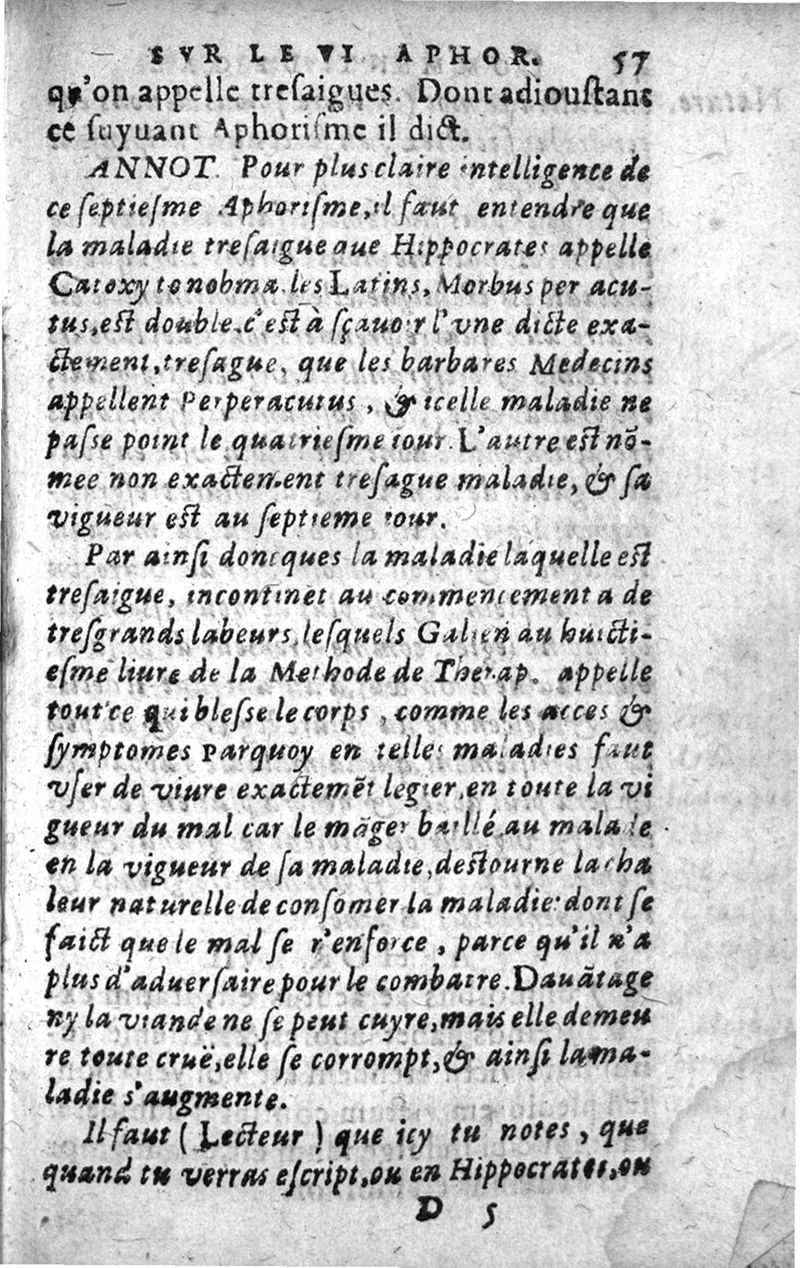 SVR LE VI. APHOR. 57
qu'on appelle tresaigues. Dont adioustant
ce suyuant Aphorisme il dict.
ANNOT. Pour plus claire intelligence de
ce septiesme Aphorisme, il faut entendre que
la maladie tresaigue que Hippocrates appelle
Catoxy tonobma. les Latins, Morbus per acu-
tus, est double, c'est à sçauoir l'vne dicte exa-
ctement, tresague, que les barbares Medecins
appellent Perperacutus, & icelle maladie ne
passe point le quatriesme iour. L'autre est nõ-
mee non exactement tresague maladie, & sa
vigueur est au septieme iour.
Par ainsi doncques la maladie laquelle est
tresaigue, incontinẽt au commencement a de
tresgrands labeurs, lesquels Galien au huicti-
esme liure de la Methode de Therap. appelle
tout ce qui blesse le corps, comme les acces &
symptomes Parquoy en telles maladies faut
vser de viure exactemẽt legier, en toute la vi
gueur du mal car le mãger baillé au malade
en la vigueur de sa maladie, destourne la cha
leur naturelle de consomer la maladie: dont se
faict que le mal se r'enforce, parce qu'il n'a
plus d'aduersaire pour le combatre. Dauãtage
ny la viande ne se peut cuyre, mais elle demeu
re toute cruë, elle se corrompt, & ainsi la ma-
ladie s'augmente.
Il faut (Lecteur) que icy tu notes, que
quand tu verras escript, ou en Hippocrates, ou
D 5